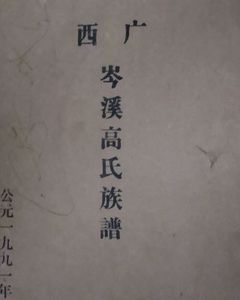 广西
岑溪高氏族譜
公元一九九一年